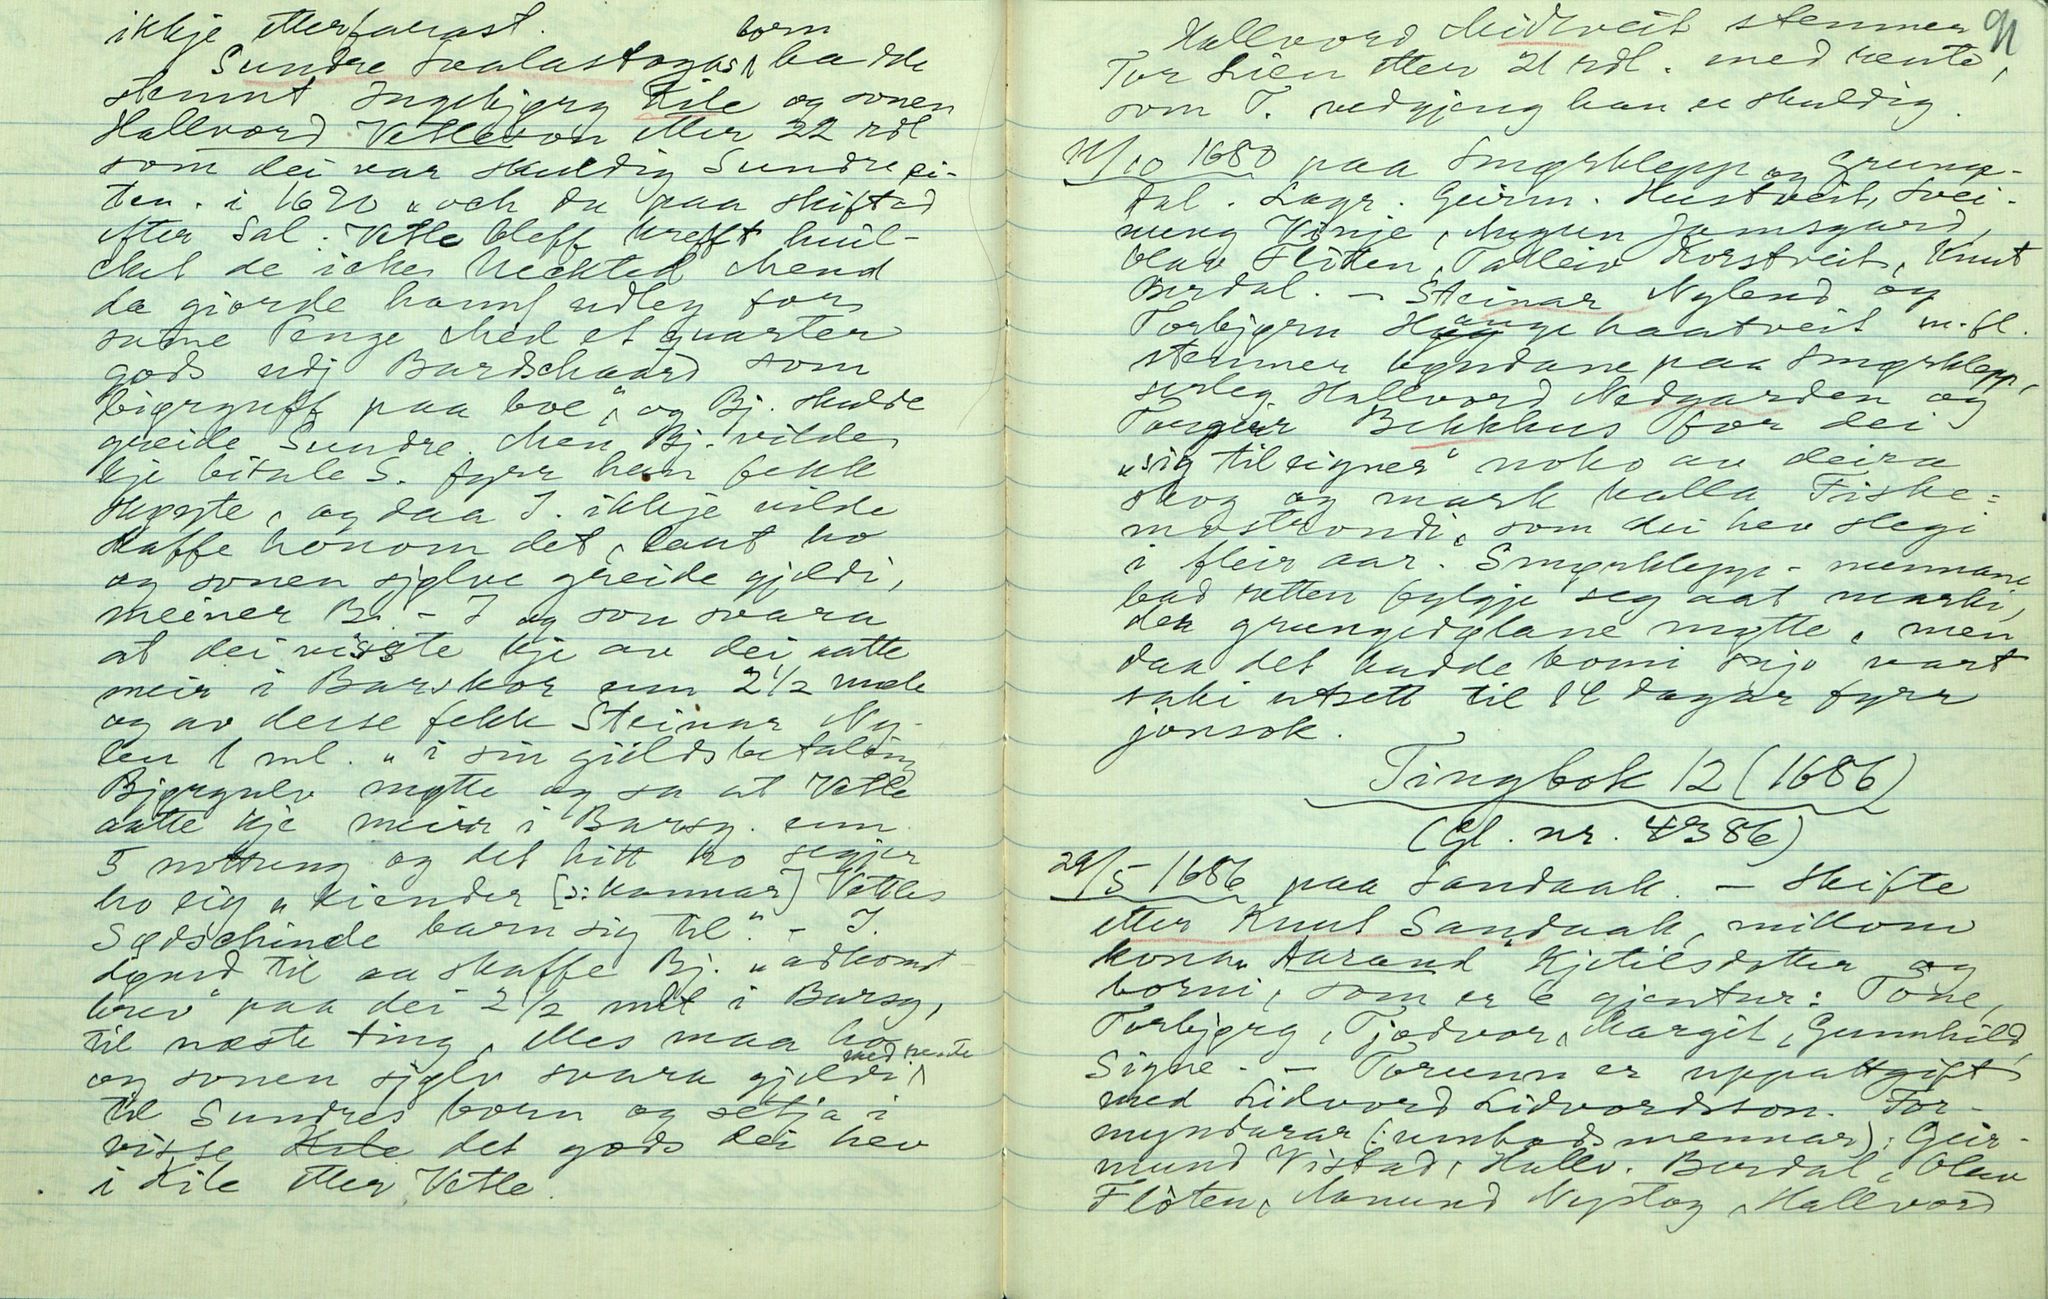 ikkje etterfarast.
Sundre Svalastogas born hadde
stemnt Ingebjørg Kile og sonen
Hallvord Vetleson etter 22 rdl
som dei var skuldig Sundre si-
den i 1670 "och da paa skiftad
efter Sal: Vetle bleff krefft huil-
chet de iche Necktad Mend
da giorde hannf udleg for
samme Penge Med et quarter
gods udj Bardschaard som
biørgulf paa boe", og Bj. skulde
greide Sundre. Men Bj. vilde
kje bitale S. fyrr han fekk
skøyte, og daa I. ikkje vilde
skaffe honom det, laut ho
og sonen sjølve greide gjeldi,
meiner B. - I og son svara
at dei visste kje av dei aatte
meir i Barskor enn 2 1/2 mele
og av desse fekk Steinar Ny-
len 1 ml. "i sin gjeldsbetaling
Bjørgulv møtte og sa at Vetle
aatte kje meir i Barsg. enn
5 nottreng og det hitt ho segjer
ho eig "kiender [ɔ: kannar] Vetles
Sødschinde barn sig til." - I.
dømd til aa skaffe Bj. "adkomst-
brev" paa dei 2 1/2 mel i Barsg,
til næste ting, elles maa ho
og sonen sjølv svara gjeldi med rente
til Sundres born og setja i
visse Kile det gods dei hev
i Kile etter Vetle.
91
Hallvord Midtveit stemner
Tor Lien etter 21 rdl. med rente,
som T. vedgjeng han er skuldig.
11/10 1680 paa Smørklepp og Grunge-
dal. Lagr. Geirm. Hustveit, Svei-
nung Vinje, Augun Jamsgard,
Olav Flòten, Talleiv Korstveit, Knut
Berdal. - Steinar Nylend og
Torbjørn Haugehaatveit m.fl.
stemner bøndane paa Smørklepp,
serleg Hallvord Nedgarden og
Torgeir Bekkhus for dei
"sig tileigner" noko av deira
skog og mark kalla Fiske-
møstrondi, som dei hev slegi
i fleir aar. Smørklepp-mennane
bad retten fylgje seg aat marki,
der grungedølane møtte, men
daa det hadde komi snjo vart
saki utsett til 14 dagar fyrr
jonsok.
Tingbok 12 (1686)
(Gl. nr. 4386)
29/5 1686 paa Sandaak. - Skifte
etter Knut Sandaak, millom
kona "Aaraad" Kjetilsdotter og
borni, som er 6 gjentur: Tone,
Torbjørg, Tjodvor, Margit, Gunnhild,
Signe. - Torunn er uppattgift
med Lidvord Lidvordsson. For-
myndarar (: umbodsmennar): Geir-
mund Vistad, Hallv. Berdal, Olav
Flòten, Aamund Nystog, Hallvord